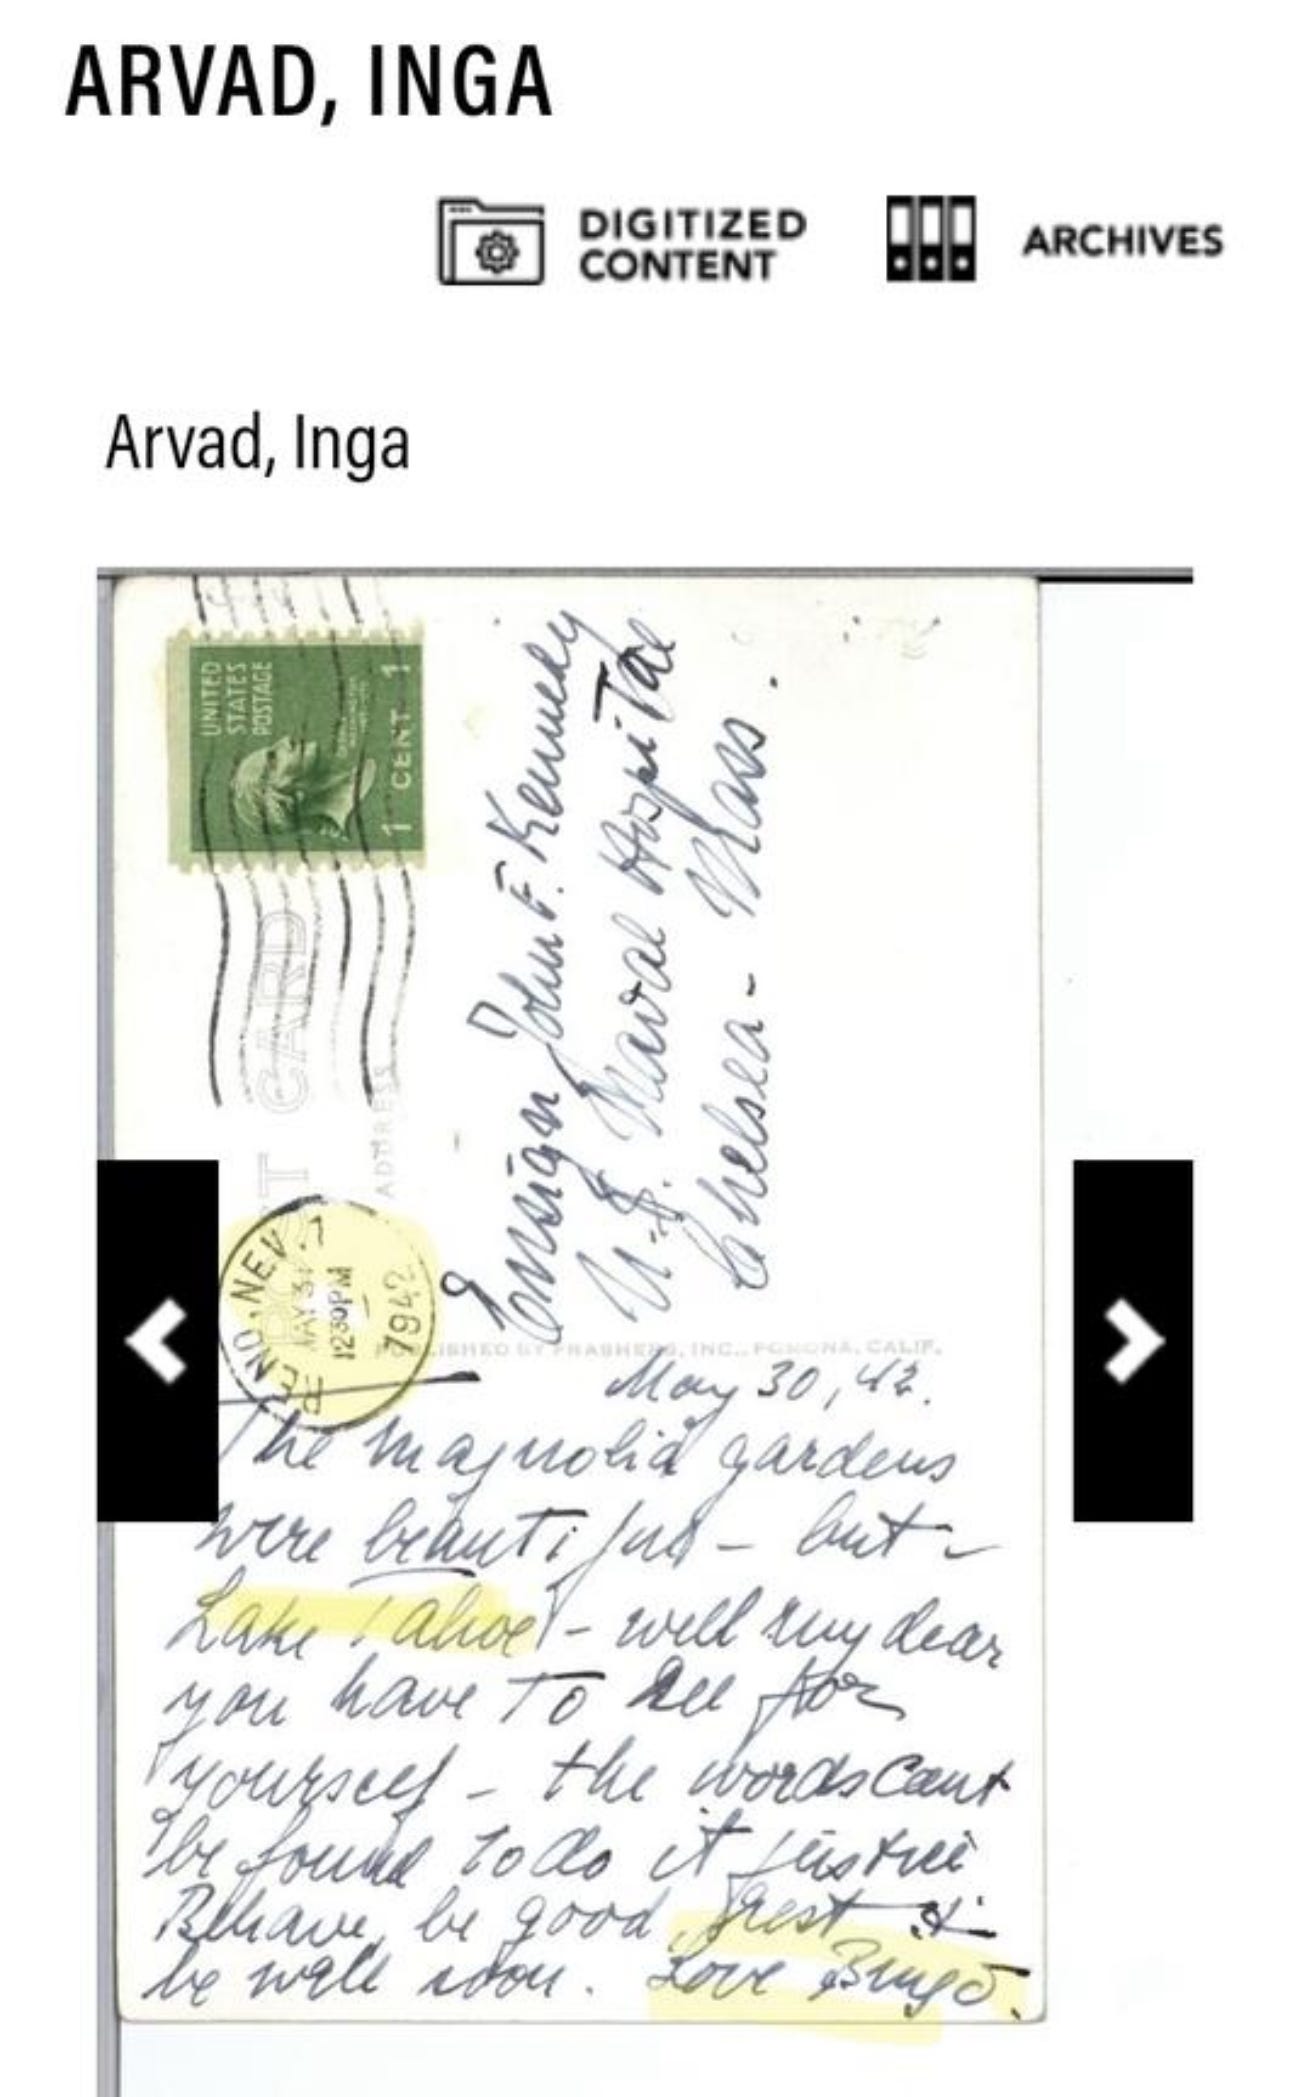 ARVAD, INGA
DIGITIZED
CONTENT
ARCHIVES
Arvad, Inga
UNITED
STATES
POSTAGE
1 CENT 1
POST CARD
ADDRESS
RENO, NEV.
MAY 31
12 30 PM
1942
Ensign John F. Kennedy
U.S. Naval Hospital
Chelsea - Mass.
PUBLISHED BY FRASHERS, INC., POMONA, CALIF.
May 30, 42.
The magnolia gardens
were beautiful - but -
Lake Tahoe - well my dear
you have to see for
yourself - the words cant
be found to do it justice
Behave, be good, rest &
be well soon. Love